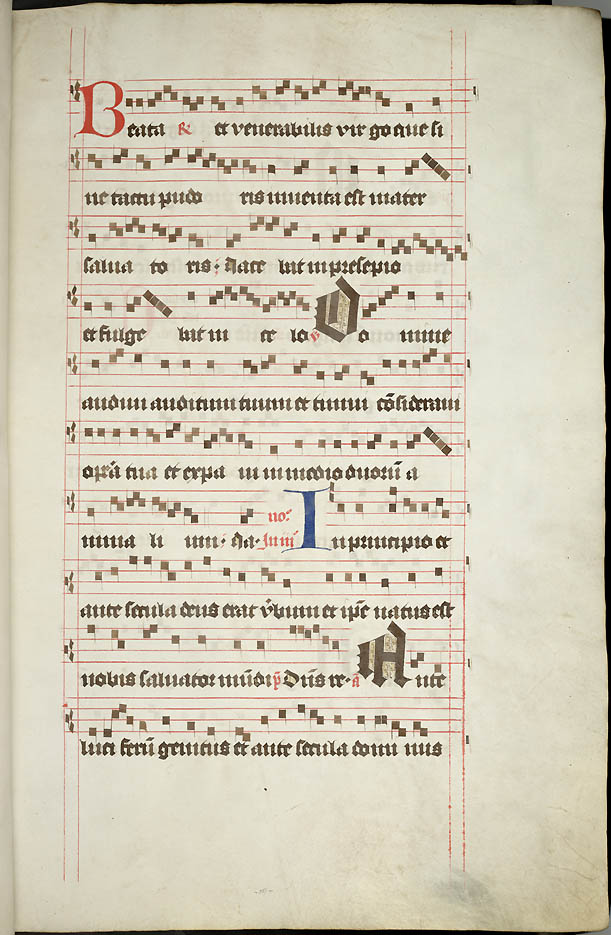 Beata ℟ et venerabilis vir go que si
ne tactu pudo ris inventa est mater
salva to ris. Iace bat in presepio
et fulge bat in ce lo ℣ Do mine
audivi auditum tuum et timui cōsideravi
opa᷑ tua et expa vi in medio duorū a
nima li um. Ia. In iii no᷑. In principio et
ante secula deus erat v᷑bum et ip̄e natus est
nobis salvator mūdi p᷑ Dn̄s re. a Ante
luci ferū genitus et ante secula domi nus